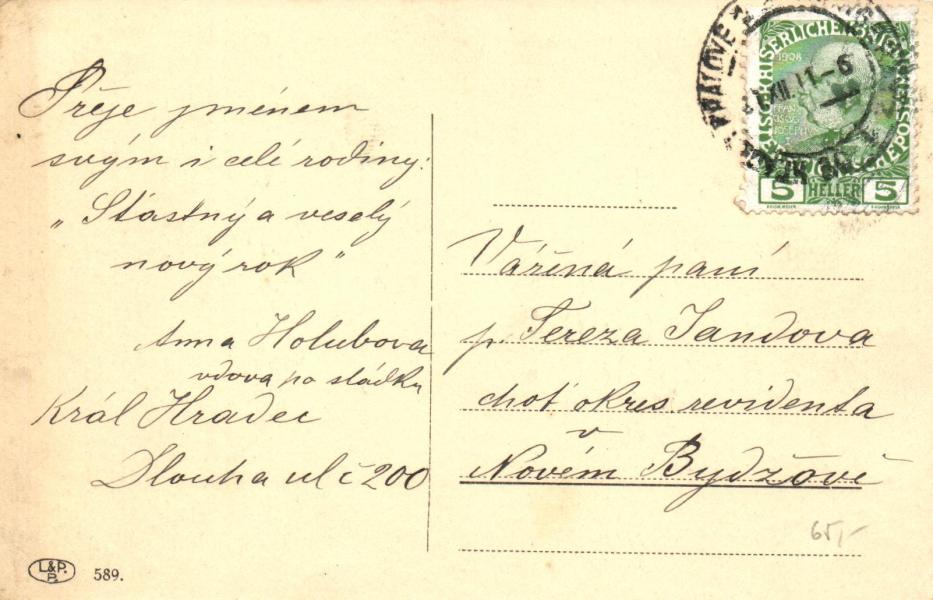 Přeje jménem
svým i celé rodiny:
„Šťastný a veselý
nový rok"
Anna Holubova
vdova po sládku
Král Hradec
Dlouha ul č 200
L&P.
B.
589.
KRALOVE
31.XII.11-6
KAISERLICHEKÖNIGLICHE
1908
FRANZ
JOSEPH
5 HELLER 5
Vážená paní
p. Tereza Jandova
choť okres. revidenta
v
Novém Bydžově
65,-